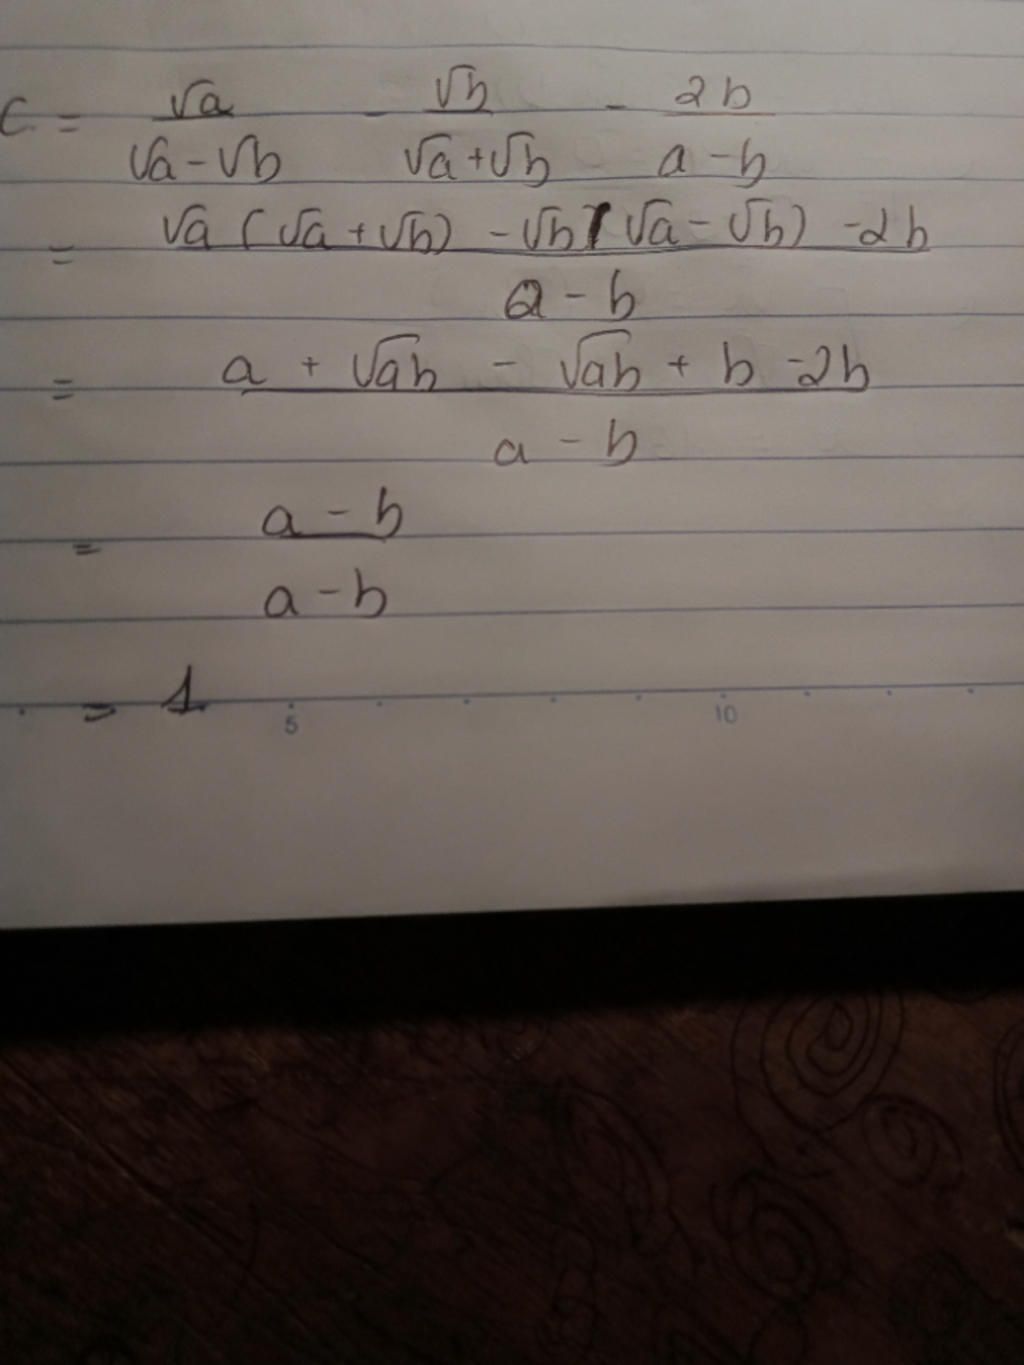 C = √a/(√a-√b) - √b/(√a+√b) - 2b/(a-b)
= (√a(√a+√b) -√b(√a-√b) -2b)/(a-b)
= (a + √ab - √ab + b -2b)/(a-b)
= (a-b)/(a-b)
= 1
5 10